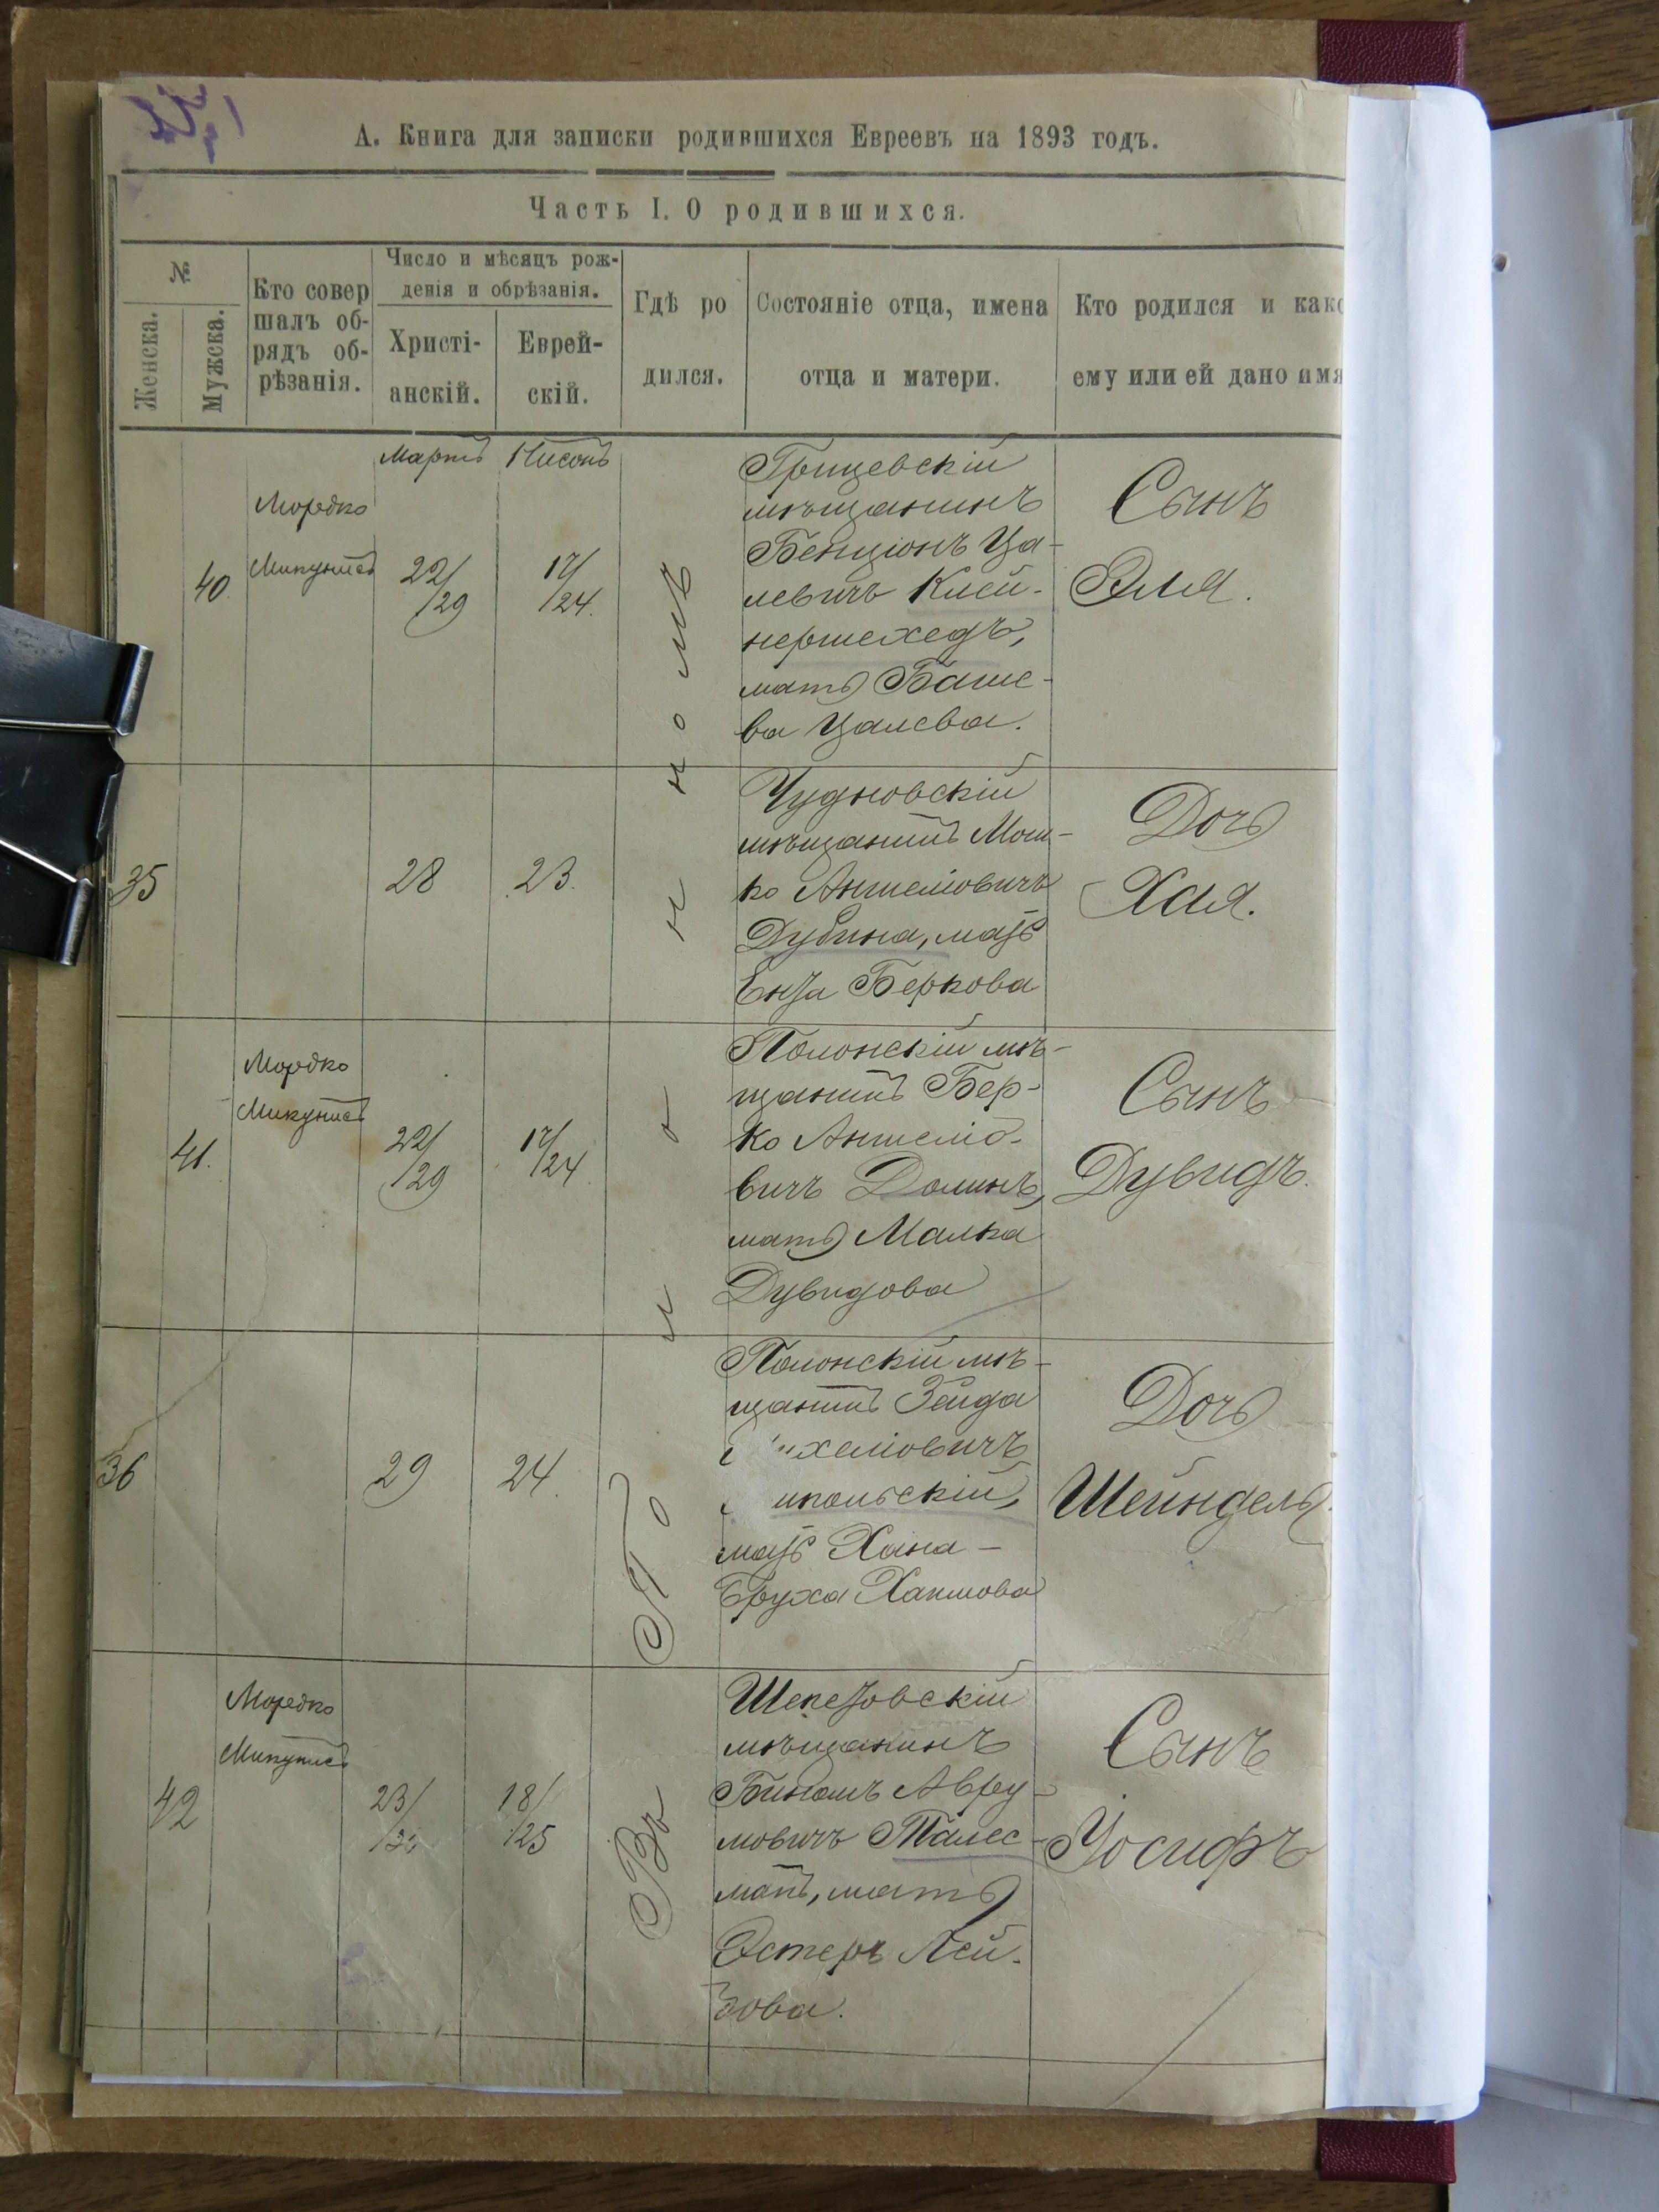 А. Книга для записки родившихся Евреевъ на 1893 годъ.
Часть I. О родившихся.
№
Женска.
Мужска.
Кто совер
шалъ об-
рядъ об-
рѣзанія.
Число и мѣсяцъ рож-
денія и обрѣзанія.
Христі-
анскій.
Еврей-
скій.
Гдѣ ро
дился.
Состояніе отца, имена
отца и матери.
Кто родился и како
ему или ей дано имя
Мартъ
Нисонъ
Въ Полонномъ
40.
Мордко
22/
/29
17/
/24.
Грицевскій
мѣщанинъ
Бенціонъ Ца-
левичъ Клей-
нершехедъ,
мать Баше-
ва Цалева.
Сынъ
Эля.
35
28
23.
Чудновскій
мѣщанинъ Мош-
ко Аншеліовичъ
Дубина, мать
Енза Беркова
Дочь
Хая.
41.
Мордко
22/
/29
17/
/24
Полонскій мѣ-
щанинъ Бер-
ко Аншеліо-
вичъ Долинъ,
мать Малка
Дувидова
Сынъ
Дувидъ.
36
29
24.
Полонскій мѣ-
щанинъ Зейда
ихеліовичъ
польскій,
мать Хана-
Бруха Хаимова
Дочь
Шейндель.
42
Мордко
23/
18/
/25
Шепетовскій
мѣщанинъ
Биномъ Авру-
мовичъ Талес-
манъ, мать
Эстеръ Лей-
зова.
Сынъ
Іосифъ